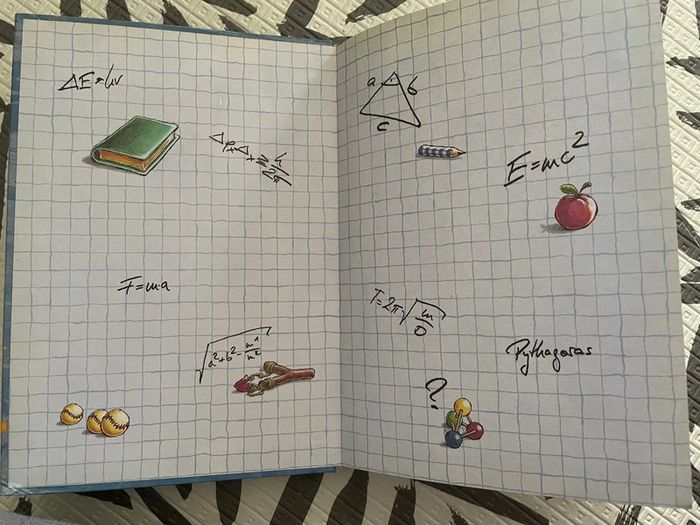 ΔE=hν
Δpₓ·Δₓ≥h/2π
F=ma
√a²+b²-m¹/m²
a b
c
E=mc²
T=2π√m/D
Pythagoras
?